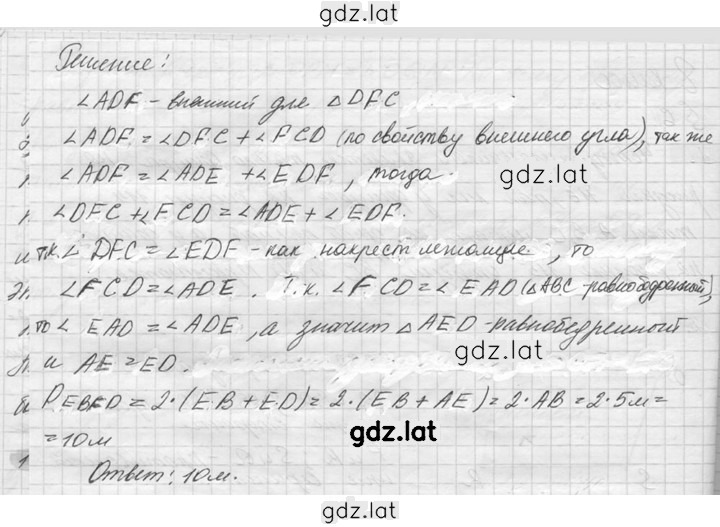 gdz.lat
Решение:
∠ADF - внешний для △DFC
∠ADF = ∠DFC + ∠FCD (по свойству внешнего угла), так же
∠ADF = ∠ADE + ∠EDF, тогда
gdz.lat
∠DFC + ∠FCD = ∠ADE + ∠EDF.
т.к. ∠DFC = ∠EDF - как накрест лежащие, то
∠FCD = ∠ADE. Т.к. ∠FCD = ∠EAD (△ABC - равнобедренный),
то ∠EAD = ∠ADE, а значит △AED - равнобедренный
и AE = ED.
gdz.lat
P EBFD = 2·(EB + ED) = 2·(EB + AE) = 2·AB = 2·5м =
= 10м
gdz.lat
Ответ: 10м.
gdz.lat